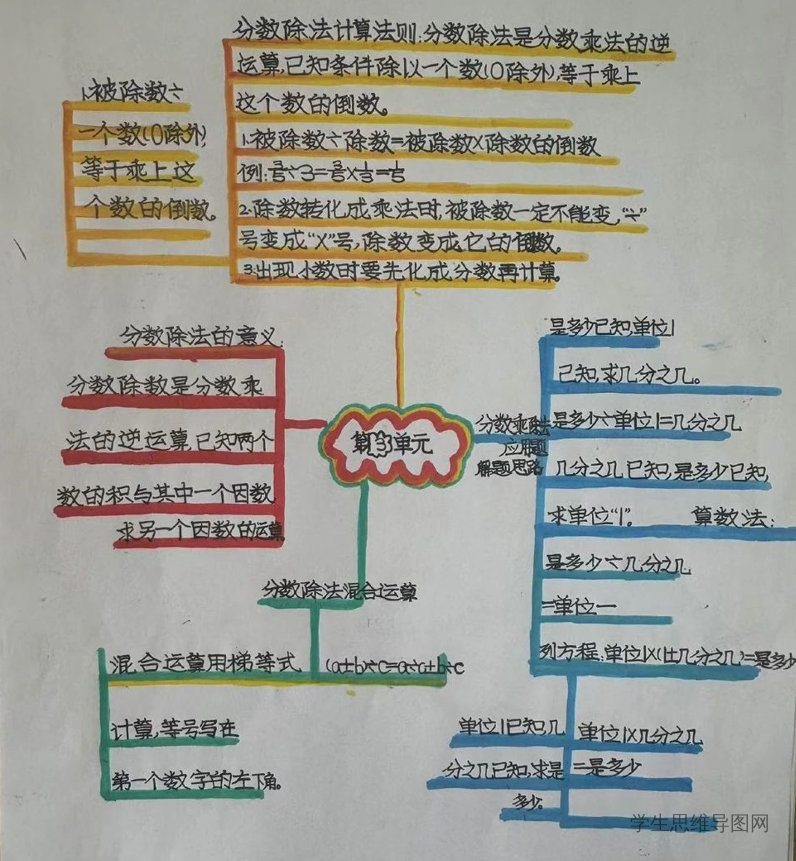 分数除法计算法则:分数除法是分数乘法的逆
运算,已知条件除以一个数(0除外),等于乘上
这个数的倒数。
1.被除数÷除数=被除数×除数的倒数
例:3/5÷3=3/5×1/3=1/5
2.除数转化成乘法时,被除数一定不能变,“÷”
号变成“×”号,除数变成它的倒数。
3.出现小数时要先化成分数再计算。
1.被除数÷
一个数(0除外)
等于乘上这
个数的倒数。
分数除法的意义:
分数除数是分数乘
法的逆运算,已知两个
数的积与其中一个因数
求另一个因数的运算
第3单元
分数乘除法
应用题
解题思路
是多少已知,单位1
已知,求几分之几。
是多少÷单位1=几分之几
几分之几已知,是多少已知,
求单位“1”。 算数法:
是多少÷几分之几
=单位一
列方程:单位1×(比几分之几)=是多少
单位1已知几
分之几已知,求是
多少。
单位1×几分之几
=是多少
分数除法混合运算
混合运算用梯等式
计算,等号写在
第一个数字的左下角。
(a±b)÷c=a÷c±b÷c
学生思维导图网